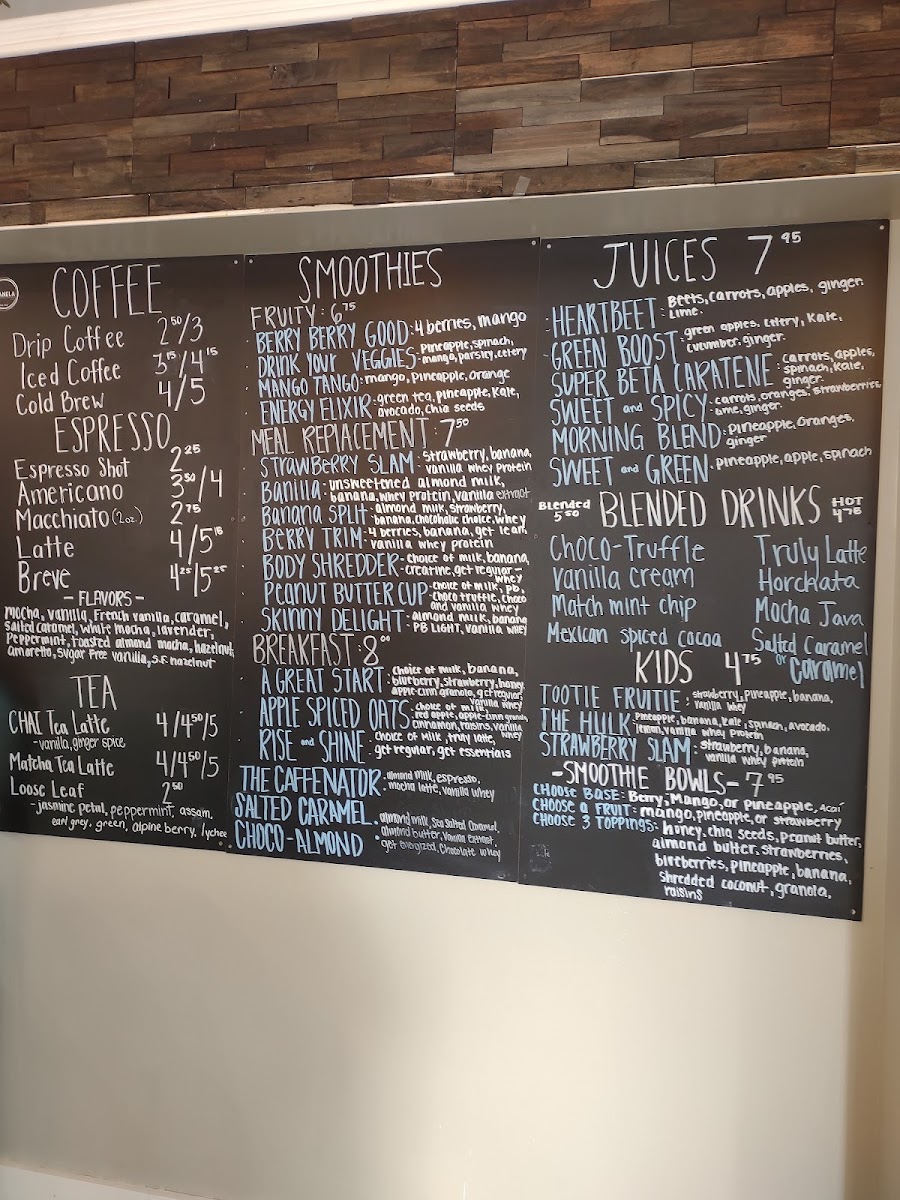 COFFEE
Drip Coffee 2 50/3
Iced Coffee 3 15/4 15
Cold Brew 4/5
ESPRESSO
Espresso Shot 2 25
Americano 3 50/4
Macchiato (2oz.) 2 75
Latte 4/5 15
Breve 4 25/5 25
- FLAVORS -
mocha, vanilla, French vanilla, caramel,
salted caramel, white mocha, lavender,
Peppermint, toasted almond mocha, hazelnut,
amaretto, sugar free vanilla, s.f. hazelnut
TEA
CHAI Tea Latte 4/4 50/5
-vanilla, ginger spice
Matcha Tea Latte 4/4 50/5
Loose Leaf 2 50
-jasmine petal, peppermint, assam,
earl grey, green, alpine berry, lychee
SMOOTHIES
FRUITY: 6 75
BERRY BERRY GOOD: 4 berries, mango
DRINK YOUR VEGGIES: Pineapple, spinach,
mango, parsley, celery
MANGO TANGO: mango, pineapple, orange
ENERGY ELIXIR: green tea, pineapple, kale,
avocado, chia seeds
MEAL REPLACEMENT: 7 50
STRAWBERRY SLAM: strawberry, banana,
vanilla whey protein
Banilla: unsweetened almond milk,
banana, whey protein, vanilla extract
BANANA SPLIT: almond milk, strawberry,
banana, chocoholic choice, whey
BERRY TRIM: 4 berries, banana, get lean,
vanilla whey protein
BODY SHREDDER: choice of milk, banana,
creatine, get regular - whey
PEANUT BUTTER CUP: choice of milk, PB,
choco truffle, choco
and vanilla whey
SKINNY DELIGHT: almond milk, banana
PB LIGHT, vanilla whey
BREAKFAST: 8 00
A GREAT START: choice of milk, banana,
blueberry, strawberry, honey,
apple-cinn granola, get regular,
vanilla whey
APPLE SPICED OATS: choice of milk,
red apple, apple-cinn granola,
cinnamon, raisins, vanilla whey
RISE and SHINE: choice of milk, truly latte,
get regular, get essentials
THE CAFFENATOR: almond milk, espresso,
mocha latte, vanilla whey
SALTED CARAMEL
CHOCO-ALMOND: almond milk, Sea Salted Caramel,
almond butter, vanilla extract,
get energized, Chocolate whey
JUICES 7 95
HEARTBEET: Beets, carrots, apples, ginger.
Lime.
GREEN BOOST: green apples, celery, kale,
cucumber, ginger.
SUPER BETA CARATENE: carrots, apples,
spinach, kale,
ginger.
SWEET and SPICY: carrots, oranges, strawberries
lime, ginger.
MORNING BLEND: pineapple, oranges,
ginger
SWEET and GREEN: pineapple, apple, spinach
Blended 5 50 BLENDED DRINKS HOT 4 75
Choco-Truffle Truly Latte
Vanilla cream Horchata
Match mint chip Mocha Java
Mexican spiced cocoa Salted Caramel
or Caramel
KIDS 4 75
TOOTIE FRUITIE: strawberry, pineapple, banana,
vanilla whey
THE HULK: pineapple, banana, kale, spinach, avocado,
lemon, vanilla whey protein
STRAWBERRY SLAM: strawberry, banana,
vanilla whey protein
-SMOOTHIE BOWLS- 7 95
CHOOSE BASE: Berry, Mango, or Pineapple, Acai
CHOOSE A FRUIT: mango, pineapple, or strawberry
CHOOSE 3 TOPPINGS: honey, chia seeds, peanut butter,
almond butter, strawberries,
blueberries, pineapple, banana,
shredded coconut, granola,
raisins